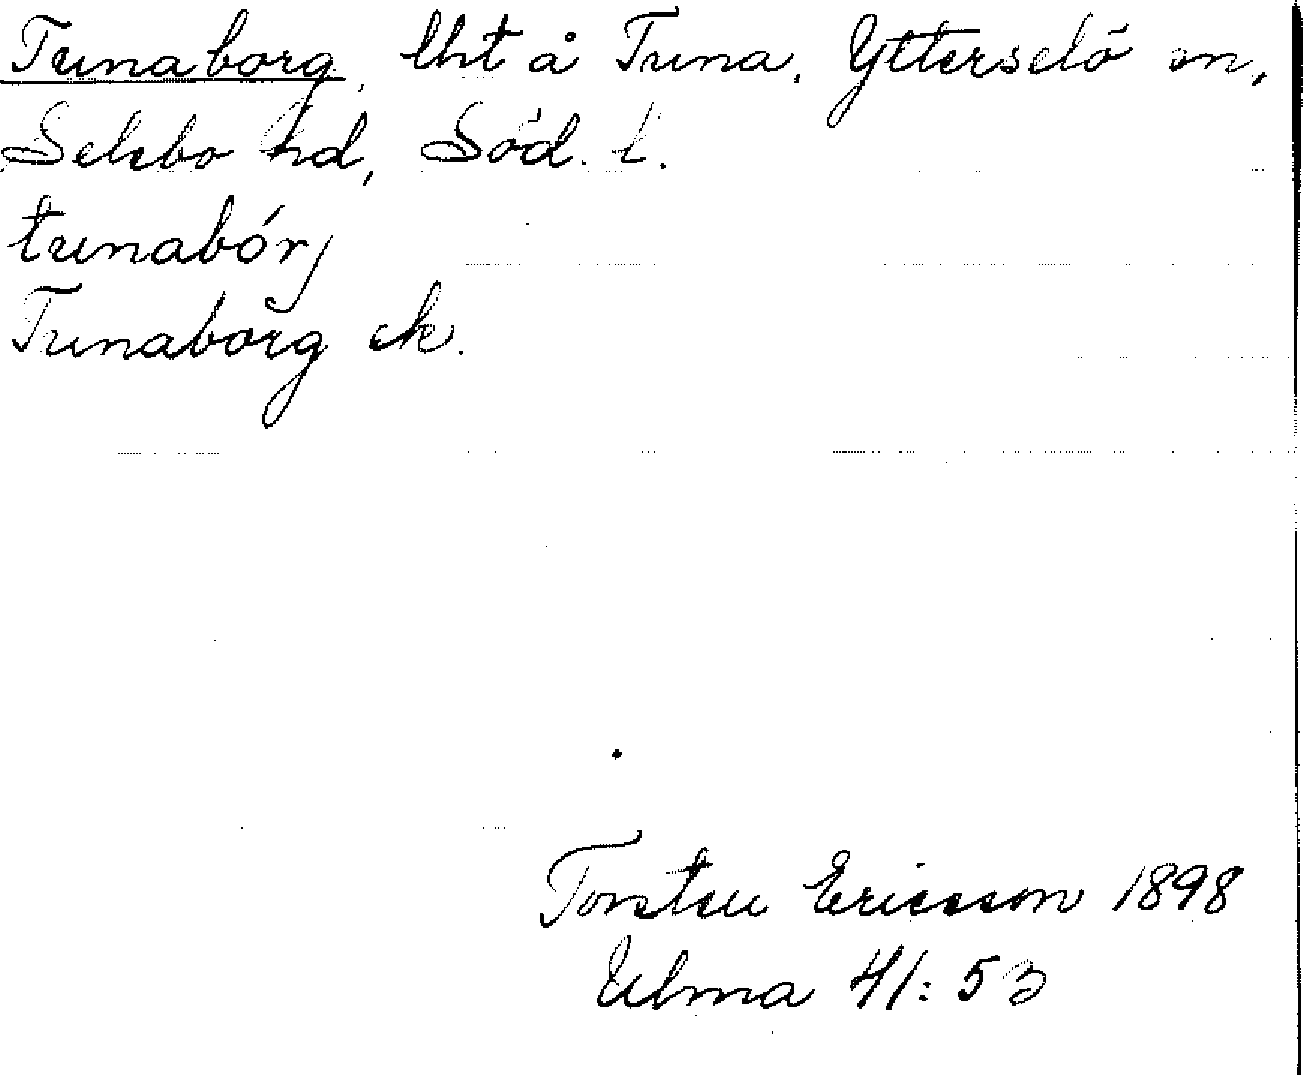 Tunaborg, lht å Tuna, Ytterselö sn,
Selebo hd, Söd. l.
tunabórj
Tunaborg ek.
Torsten Ericsson 1898
Ulma 41:53